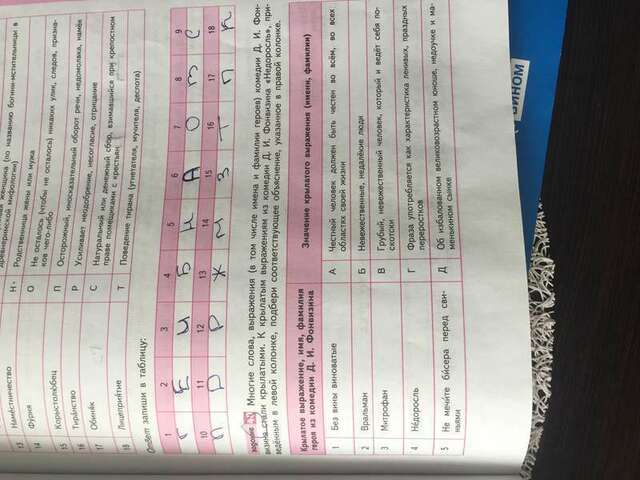 женщина (по названию богини-мстительницы в
древнеримской мифологии)
13 Наместничество Н - Родственница жены или мужа
14 Фурия О Не осталось (чтобы не осталось) никаких улик, следов, признаков чего-либо
15 Корыстолюбец П Осторожный, иносказательный оборот речи, недомолвка, намёк
16 Тиранство Р Усиливает неодобрение, несогласие, отрицание
17 Обиняк С Натуральный или денежный сбор, взимавшийся при крепостном праве помещиками с крестьян
18 Лицеприятие Т Поведение тирана (угнетателя, мучителя, деспота)
Ответ запиши в таблицу:
1 2 3 4 5 6 7 8 9
Е И Б Н А О З С
10 11 12 13 14 15 16 17 18
П Р Р Ж М З Т П К
Многие слова, выражения (в том числе имена и фамилии героев) комедии Д. И. Фон-
визина стали крылатыми. К крылатым выражениям из комедии Д. И. Фонвизина «Недоросль», при-
ведённым в левой колонке, подбери соответствующее объяснение, указанное в правой колонке.
Крылатое выражение, имя, фамилия
героя из комедии Д. И. Фонвизина
Значение крылатого выражения (имени, фамилии)
1 Без вины виноватые А Честный человек должен быть честен во всём, во всех
областях своей жизни
2 Вральман Б Невежественные, недалёкие люди
3 Митрофан В Грубый, невежественный человек, который и ведёт себя по-
скотски
4 Недоросль Г Фраза употребляется как характеристика ленивых, праздных
переростков
5 Не мечите бисера перед сви-
ньями
Д Об избалованном великовозрастном юноше, недоучке и ма-
менькином сынке
ВИНОМ